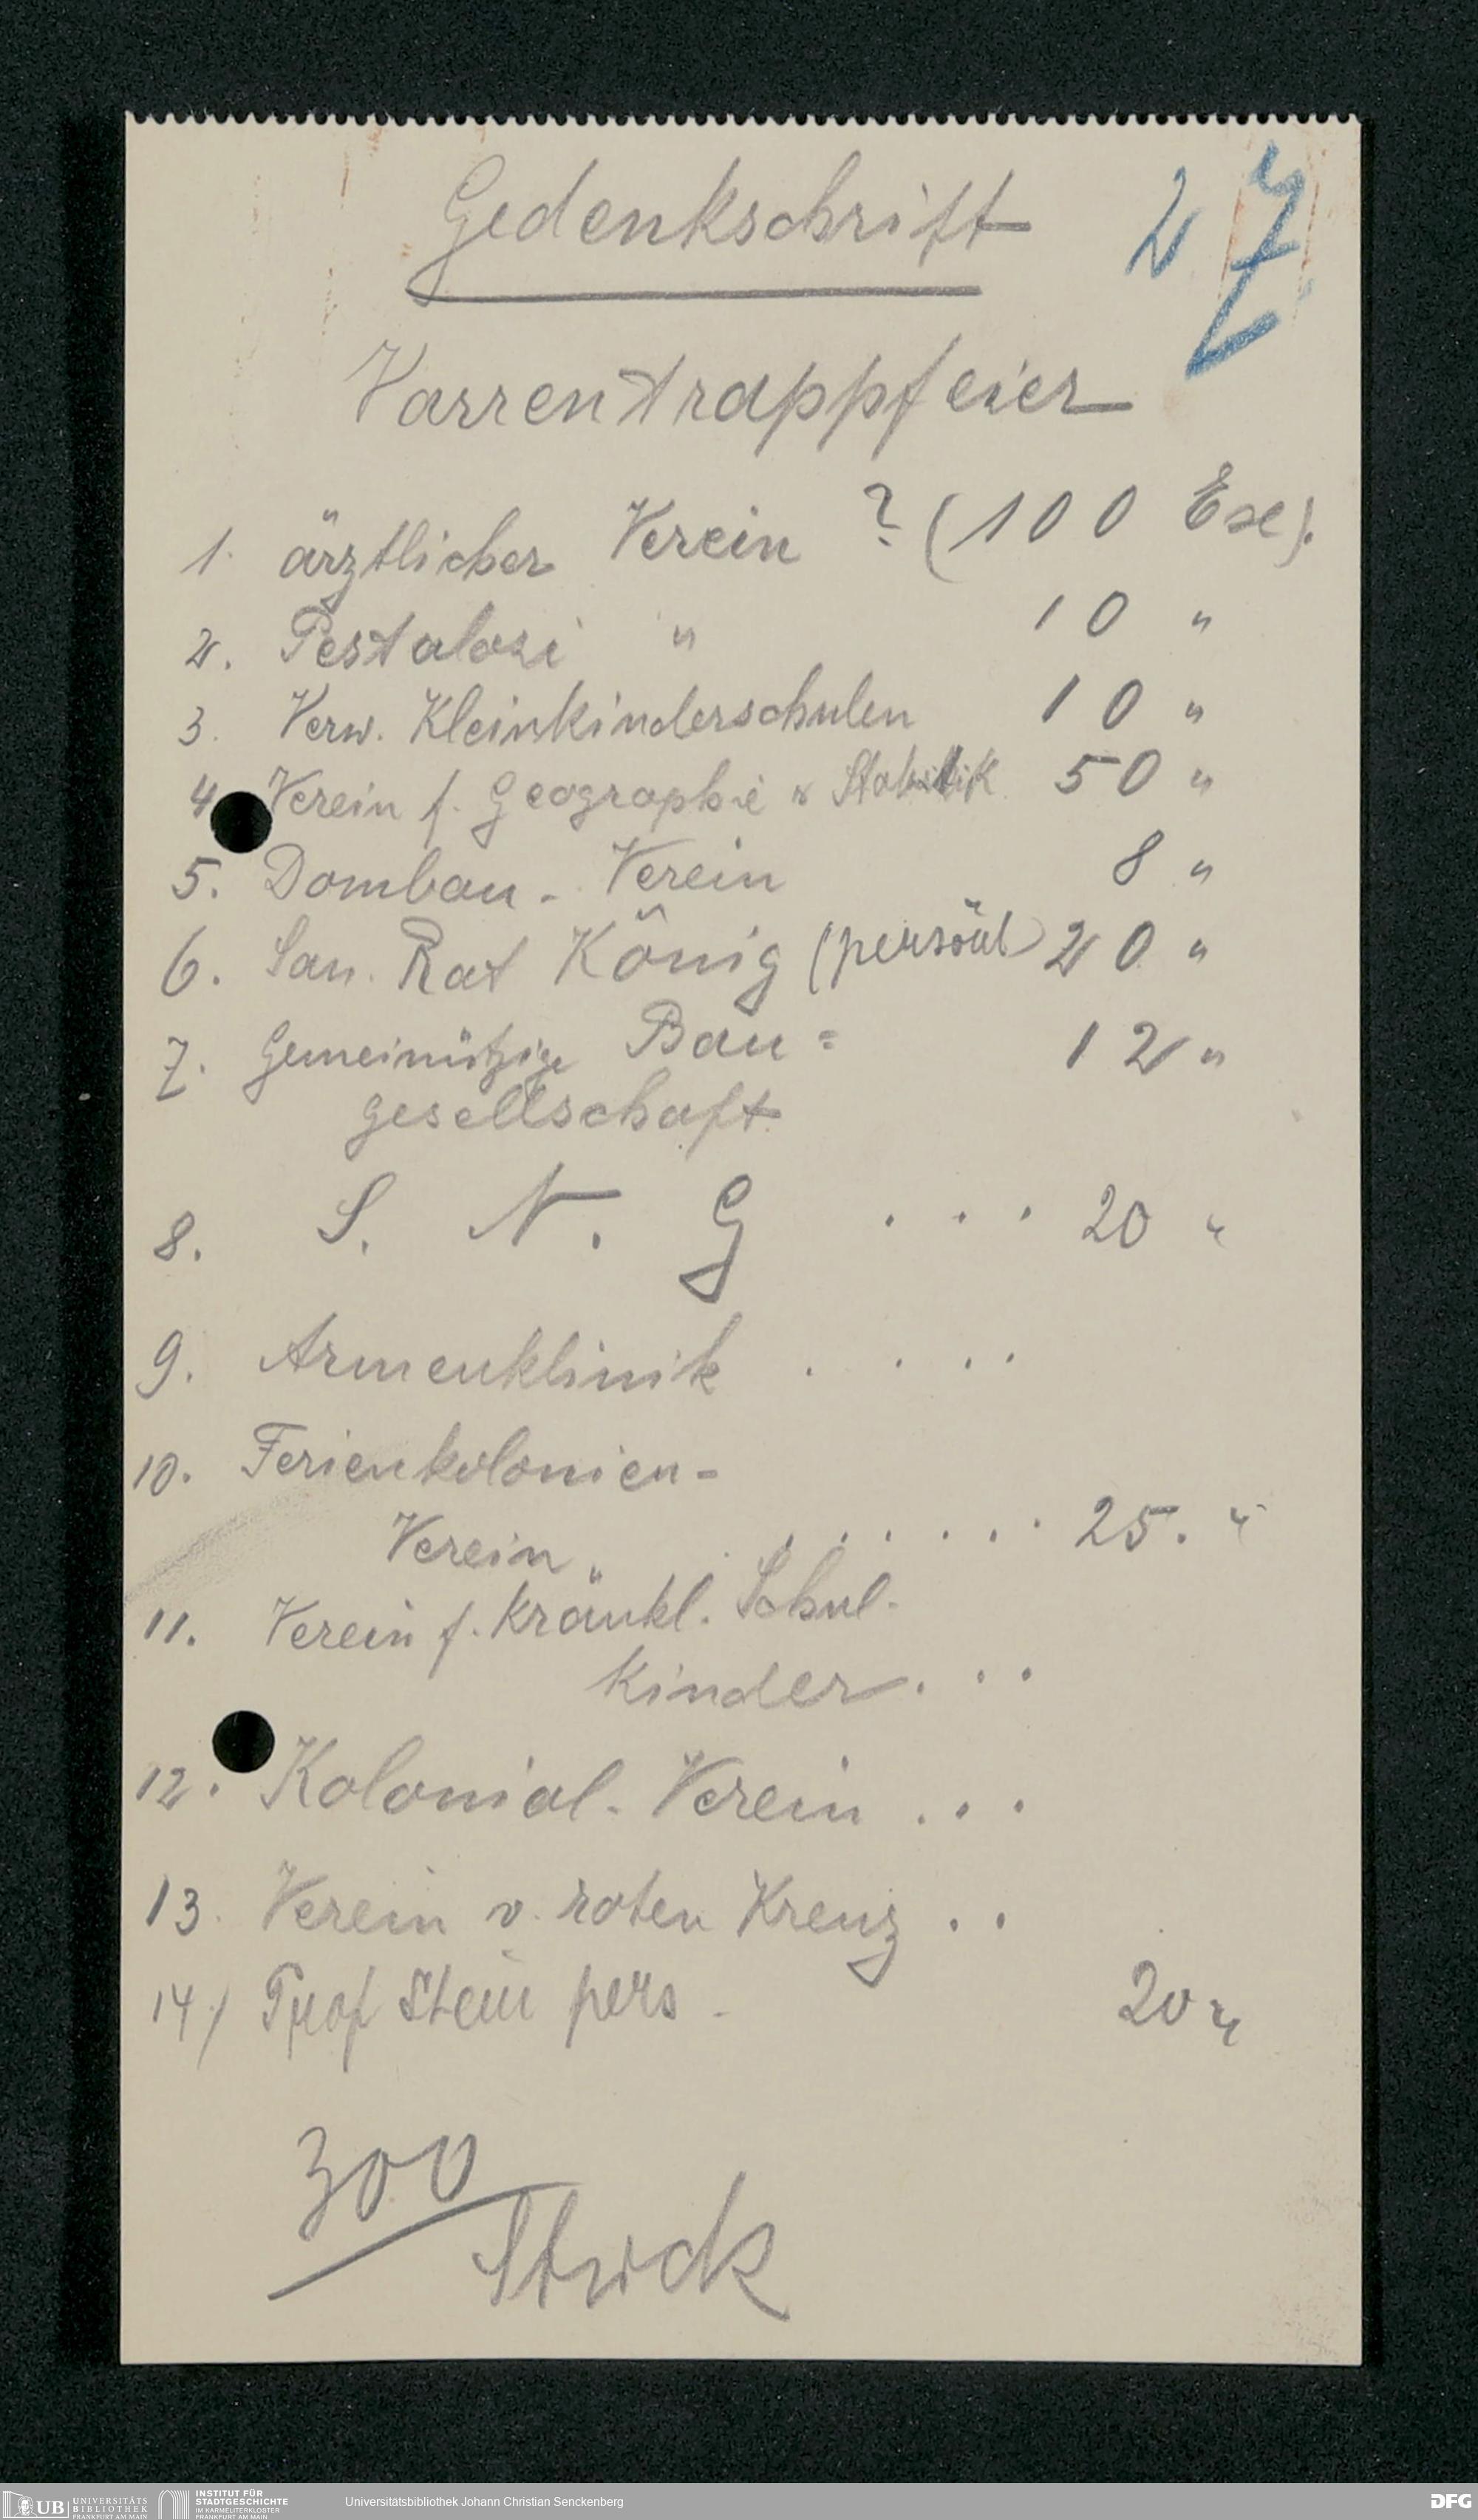 Gedenkschrift
27
Varrentrappfeier
1. ärztlicher Verein ? (100 Ex).
2. Pestalozi " 10 "
3. Verw. Kleinkinderschulen 10 "
4 Verein f. Geographie u Statistik 50 "
5. Dombau - Verein 8 "
6. San. Rat König (persönl) 20 "
7. Gemeinützige Bau= 12 "
gesellschaft
8. S. N. G . . . 20 "
9. Armenklinik . . . .
10. Ferienkolonien-
Verein . . . . . . 25. "
11. Verein f. kränkl. Schul-
kinder . . .
12. Kolonial-Verein . . .
13. Verein v. roten Kreuz . .
14/ Prof Stein pers - 20 "
300
Stück
UB UNIVERSITÄTS
BIBLIOTHEK
FRANKFURT AM MAIN
INSTITUT FÜR
STADTGESCHICHTE
IM KARMELITERKLOSTER
FRANKFURT AM MAIN
Universitätsbibliothek Johann Christian Senckenberg
DFG